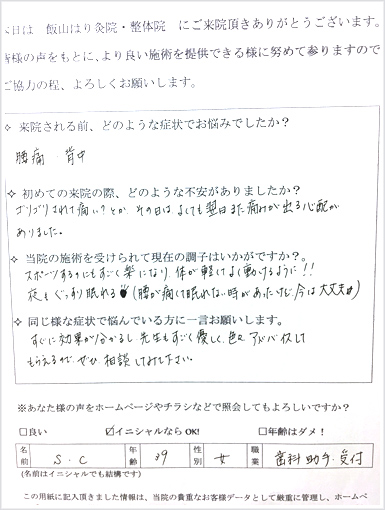 本日は　飯山はり灸院・整体院　にご来院頂きありがとうございます。
皆様の声をもとに、より良い施術を提供できる様に努めて参りますので
ご協力の程、よろしくお願いします。
✧ 来院される前、どのような症状でお悩みでしたか？
腰痛　背中
✧ 初めての来院の際、どのような不安がありましたか？
ゴリゴリされて痛い？とか、その日はよくても翌日また痛みが出る心配が
ありました。
✧ 当院の施術を受けられて現在の調子はいかがですか？
スポーツするのにもすごく楽になり、体が軽くてよく動けるように！！
夜もぐっすり眠れる（腰が痛くて眠れない時があったけど、今は大丈夫）
✧ 同じ様な症状で悩んでいる方に一言お願いします。
すぐに効果が分かるし、先生もすごく優しく、色々アドバイスして
もらえるので、ぜひ相談してみて下さい。
※あなた様の声をホームページやチラシなどで照会してもよろしいですか？
□良い　☑イニシャルなら OK!　□年齢はダメ！
名前　S・C　年齢　39　性別　女　職業　歯科助手・受付
(名前はイニシャルでも結構です)
この用紙に記入頂きました情報は、当院の貴重なお客様データとして厳重に管理し、ホームペ